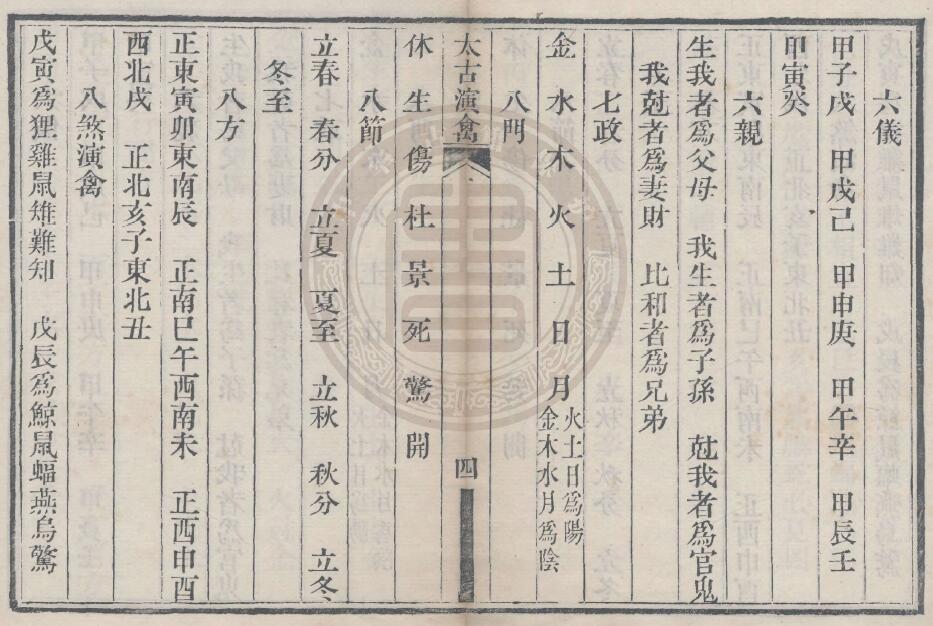 六儀
甲子戊　甲戌己　甲申庚　甲午辛　甲辰壬
甲寅癸
六親
生我者為父母　我生者為子孫　尅我者為官鬼
我尅者為妻財　比和者為兄弟
七政
金　水　木　火　土　日　月　火土日為陽
金木水月為陰
八門
太古演禽　四
休　生　傷　杜　景　死　驚　開
八節
立春　春分　立夏　夏至　立秋　秋分　立冬
冬至
八方
正東寅卯東南辰　正南巳午西南未　正西申酉
西北戌　正北亥子東北丑
八煞演禽
戊寅為狸雞鼠雉難知　戊辰為鯨鼠蝠燕烏驚